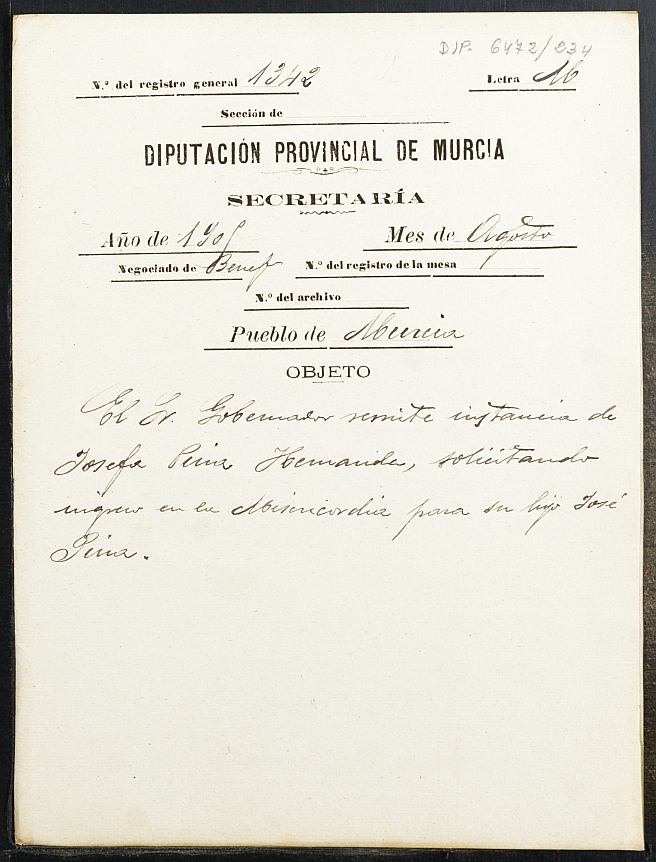 DIP. 6472/234
N.º del registro general 1342 Letra M
Sección de
DIPUTACIÓN PROVINCIAL DE MURCIA
SECRETARÍA
Año de 190 Mes de Agosto
Negociado de Benefª N.º del registro de la mesa
N.º del archivo
Pueblo de Murcia
OBJETO
El Sr. Gobernador remite instancia de
Josefa Pina Hernandez, solicitando
ingreso en la Misericordia para su hijo José
Pina.